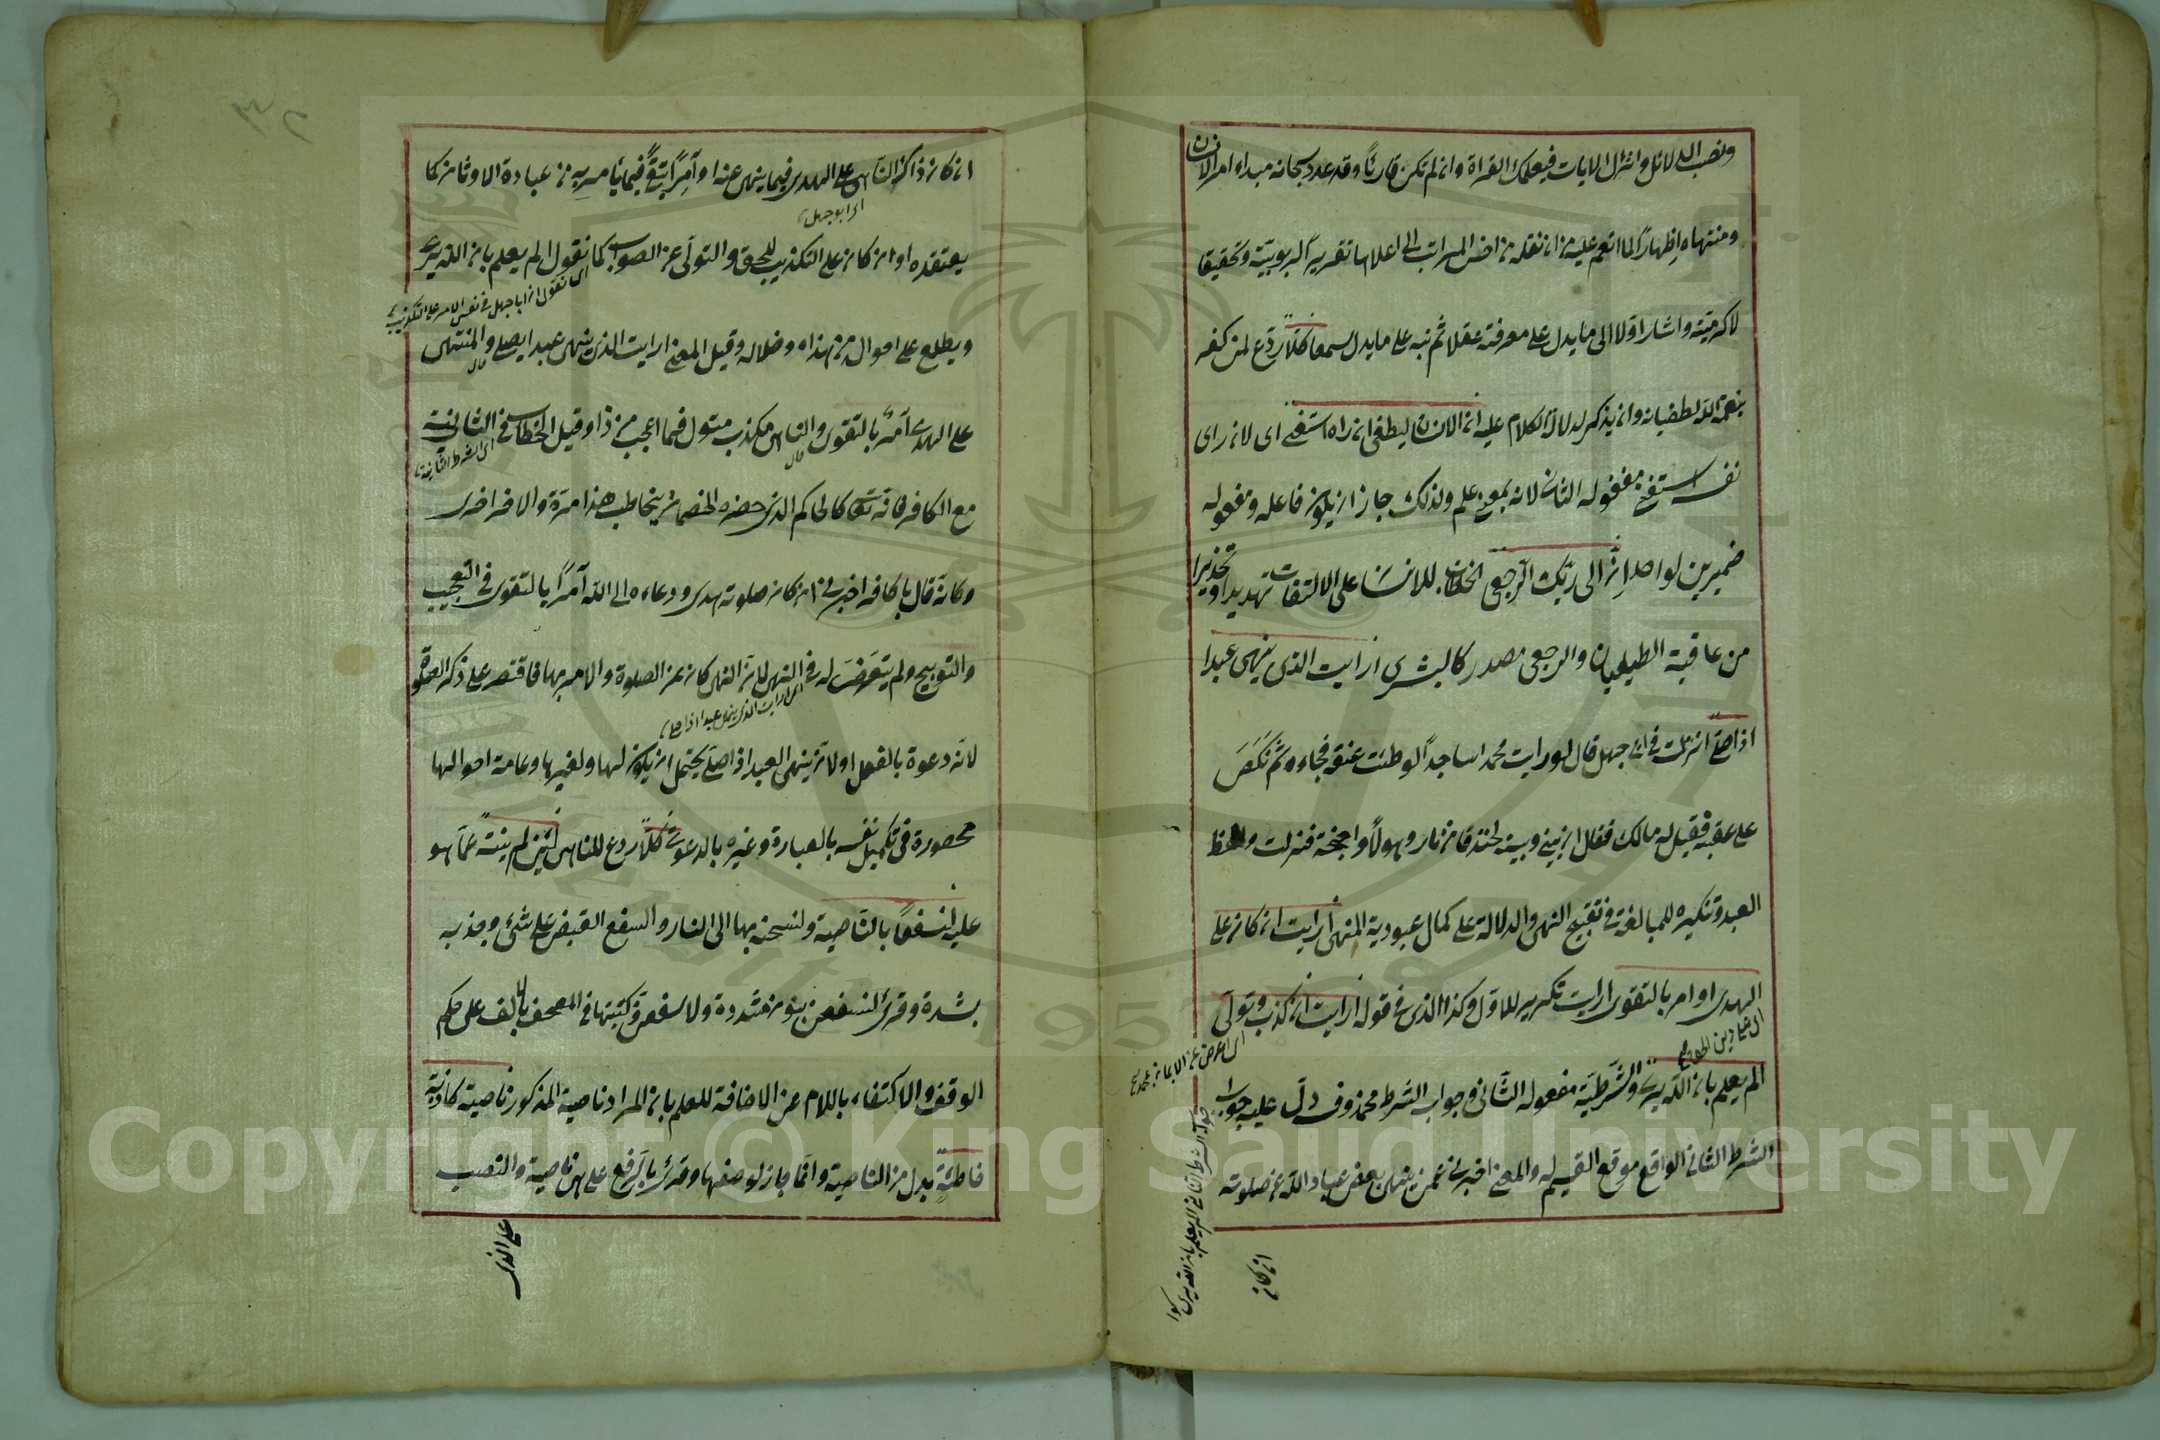 ونصب الدلائل وانزل الايات فيعلمك القراة وان لم تكن قارئا وقد عدد سبحانه مبداء امر الانسان
ومنتهاه اظهارا لما انعم عليه من ان نقله من اخس المراتب الى اعلاها تقريرا لربوبيته وتحقيقا
لاكرميته واشار اولا الى ما يدل على معرفته عقلا ثم نبه على ما يدل سمعا كلا ردع لمن كفر
بنعمة الله لطغيانه وان يذكر لدلالة الكلام عليه ان الانسان ليطغى ان راه استغنى اى لان راى
نفسه استغنى مفعوله الثانى لانه بمعنى علم ولذلك جاز ان يكون فاعله ومفعوله
ضميرين لواحد ان الى ربك الرجعى الخطاب للانسان على الالتفات تهديدا وتحذيرا
من عاقبة الطغيان والرجعى مصدر كالبشرى ارايت الذى ينهى عبدا
اذا صلى نزلت فى ابى جهل قال لو رايت محمدا ساجدا لوطئت عنقه فجاءه ثم نكص
على عقبيه فقيل له مالك فقال ان بينى وبينه لخندقا من نار وهولا واجنحة فنزلت ولفظ
العبد وتنكيره للمبالغة فى تقبيح النهى والدلالة على كمال عبودية المنهى ارايت ان كان على
الهدى او امر بالتقوى ارايت تكرير للاول وكذا الذى فى قوله ارايت ان كذب وتولى
اى اعرض عن الايمان
الم يعلم بان الله يرى والشرطية مفعوله الثانى وجواب الشرط محذوف دل عليه جواب
الشرط الثانى الواقع موقع القسيم له والمعنى اخبرنى عمن ينهى بعض عباد الله عن صلوته
جواب الشرط الثانى الم يعلم بان الله يرى
ان كان
ان كان ذاك الناهى على الهدى فيما ينهى عنه او آمرا بالتقوى فيما يامر به من عبادة الاوثان كما
اى ابو جهل
يعتقده او ان كان على التكذيب للحق والتولى عن الصواب كما نقول الم يعلم بان الله يرى
اى نقول ان ابا جهل فى نفس الامر على التكذيب
ويطلع على احواله من هداه وضلاله وقيل المعنى ارايت الذى ينهى عبدا يصلى والمنهى
على الهدى آمر بالتقوى والناهى مكذب متول فما اعجب من ذا وقيل الخطاب فى الثانية
اى الشرط الثانية
مع الكافر فانه تعالى كالحاكم الذى حضره الخصمان يخاطب هذا مرة والاخر اخرى
وكانه قال يا كافر اخبرنى ان كان صلوته هدى ودعاءه الى الله آمرا بالتقوى فى التعجب
والتوبيخ ولم يتعرض له فى النهى لان النهى كان عن الصلوة والامر بها فاقتصر على ذكر الصلوة
اى ارايت الذى ينهى عبدا اذا صلى
لانه دعوة بالفعل او لان نهى العبد اذا صلى يحتمل ان يكون لها ولغيرها وعامة احوالها
محصورة فى تكميل نفسه بالعبادة وغيره بالدعوة كلا ردع للناهى لئن لم ينته عما هو
عليه لنسفعا بالناصية ولنسحبنه بها الى النار والسفع القبض على شئ وجذبه
بشدة وقرئ لنسفعن بنون مشددة ولاسفعن وكتبتها فى المصحف بالالف على حكم
الوقف والاكتفاء باللام عن الاضافة للعلم بان المراد ناصية المذكور ناصية كاذبة
خاطئة بدل من الناصية وانما جاز لوصفها وقرئ بالرفع على هى ناصية والنصب
على الذم